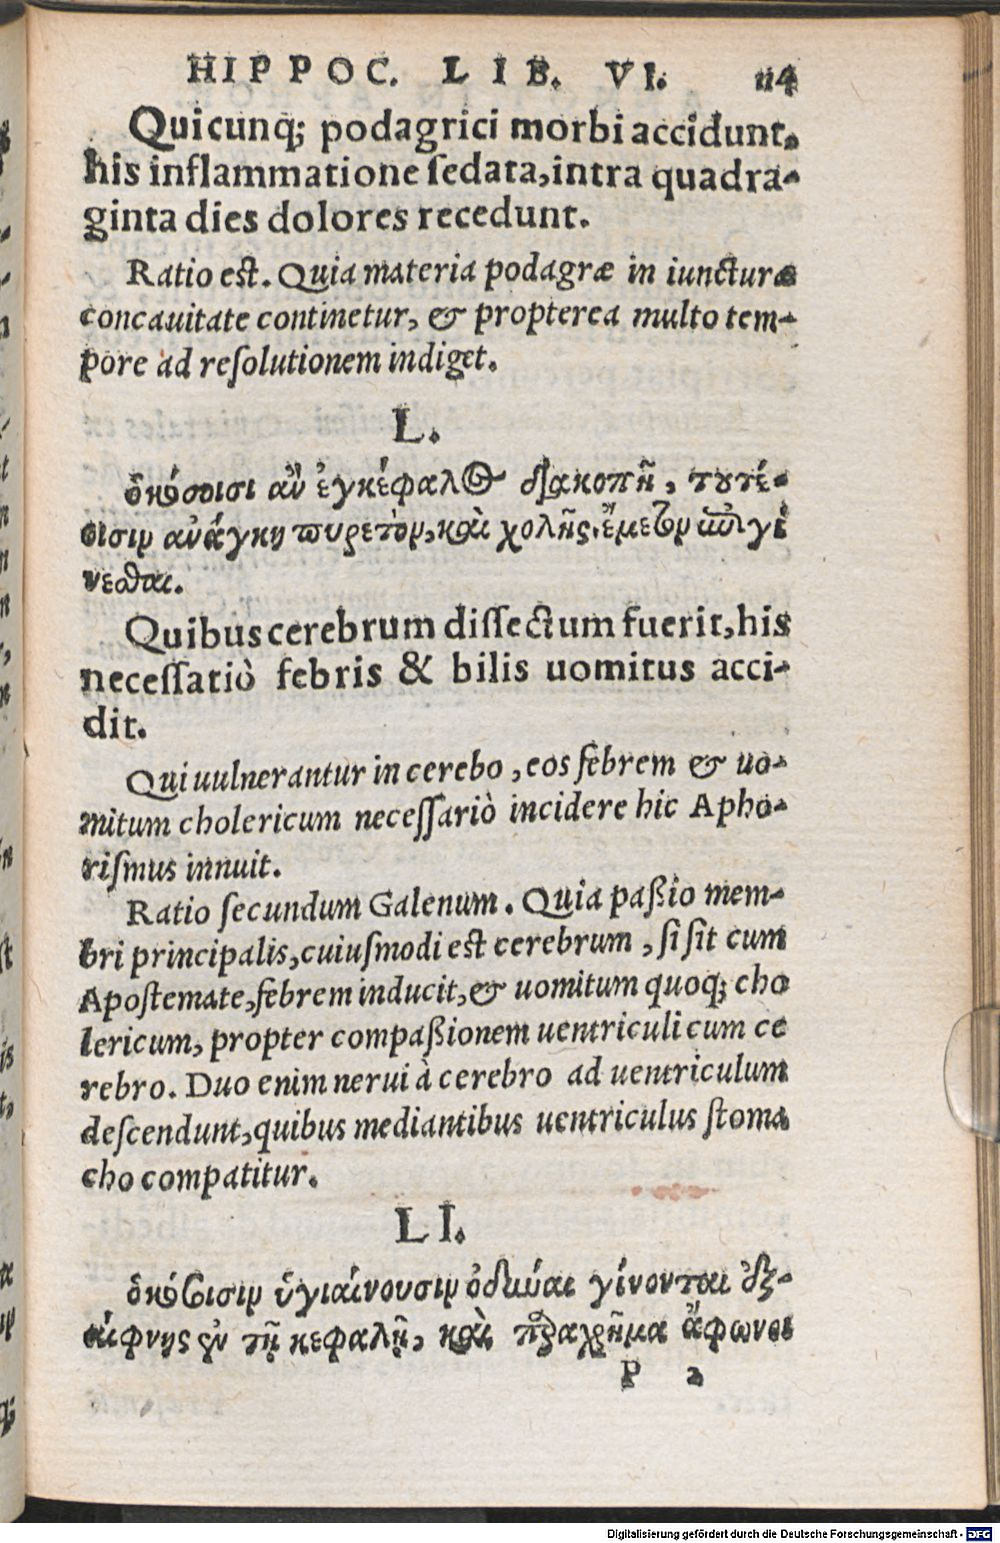 HIPPOC. LIB. VI. 114
Quicunq; podagrici morbi accidunt,
his inflammatione ſedata, intra quadra-
ginta dies dolores recedunt.
Ratio est. Quia materia podagræ in iuncturæ
concauitate continetur, & propterea multo tem-
pore ad reſolutionem indiget.
L.
ὁκόσοισι ἂν ἐγκέφαλος διακοπῇ, τουτέ-
οισιν ἀνάγκη πυρετὸν, καὶ χολῆς ἔμετον ἐπιγί
νεσθαι.
Quibus cerebrum diſſectum fuerit, his
neceſſatiò febris & bilis uomitus acci-
dit.
Qui uulnerantur in cerebo, eos febrem & uo-
mitum cholericum neceſſariò incidere hic Apho-
riſmus innuit.
Ratio ſecundum Galenum. Quia paßio mem-
bri principalis, cuiuſmodi est cerebrum, ſi ſit cum
Apostemate, febrem inducit, & uomitum quoq; cho
lericum, propter compaßionem uentriculi cum ce
rebro. Duo enim nerui à cerebro ad uentriculum
deſcendunt, quibus mediantibus uentriculus ſtoma
cho compatitur.
LI.
ὁκόσοισιν ὑγιαίνουσιν ὀδύναι γίνονται ἐξ-
αίφνης ἐν τῇ κεφαλῇ, καὶ παραχρῆμα ἄφωνοι
P 2
Digitalisierung gefördert durch die Deutsche Forschungsgemeinschaft - DFG